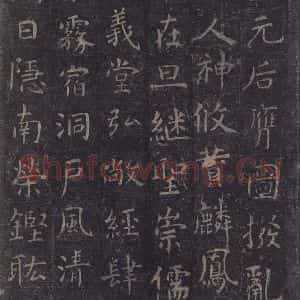 元后膺圖撥亂
人神攸贊麟鳳
在旦繼聖崇儒
義堂弘敞經肆
霧宿洞戶風清
日隱南榮鏗耾
Shufawang.CN